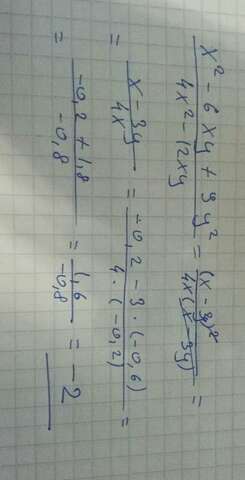 x² - 6xy + 9y² / 4x² - 12xy = (x - 3y)² / 4x(x - 3y) =
= x - 3y / 4x = -0,2 - 3·(-0,6) / 4·(-0,2) =
= -0,2 + 1,8 / -0,8 = 1,6 / -0,8 = -2